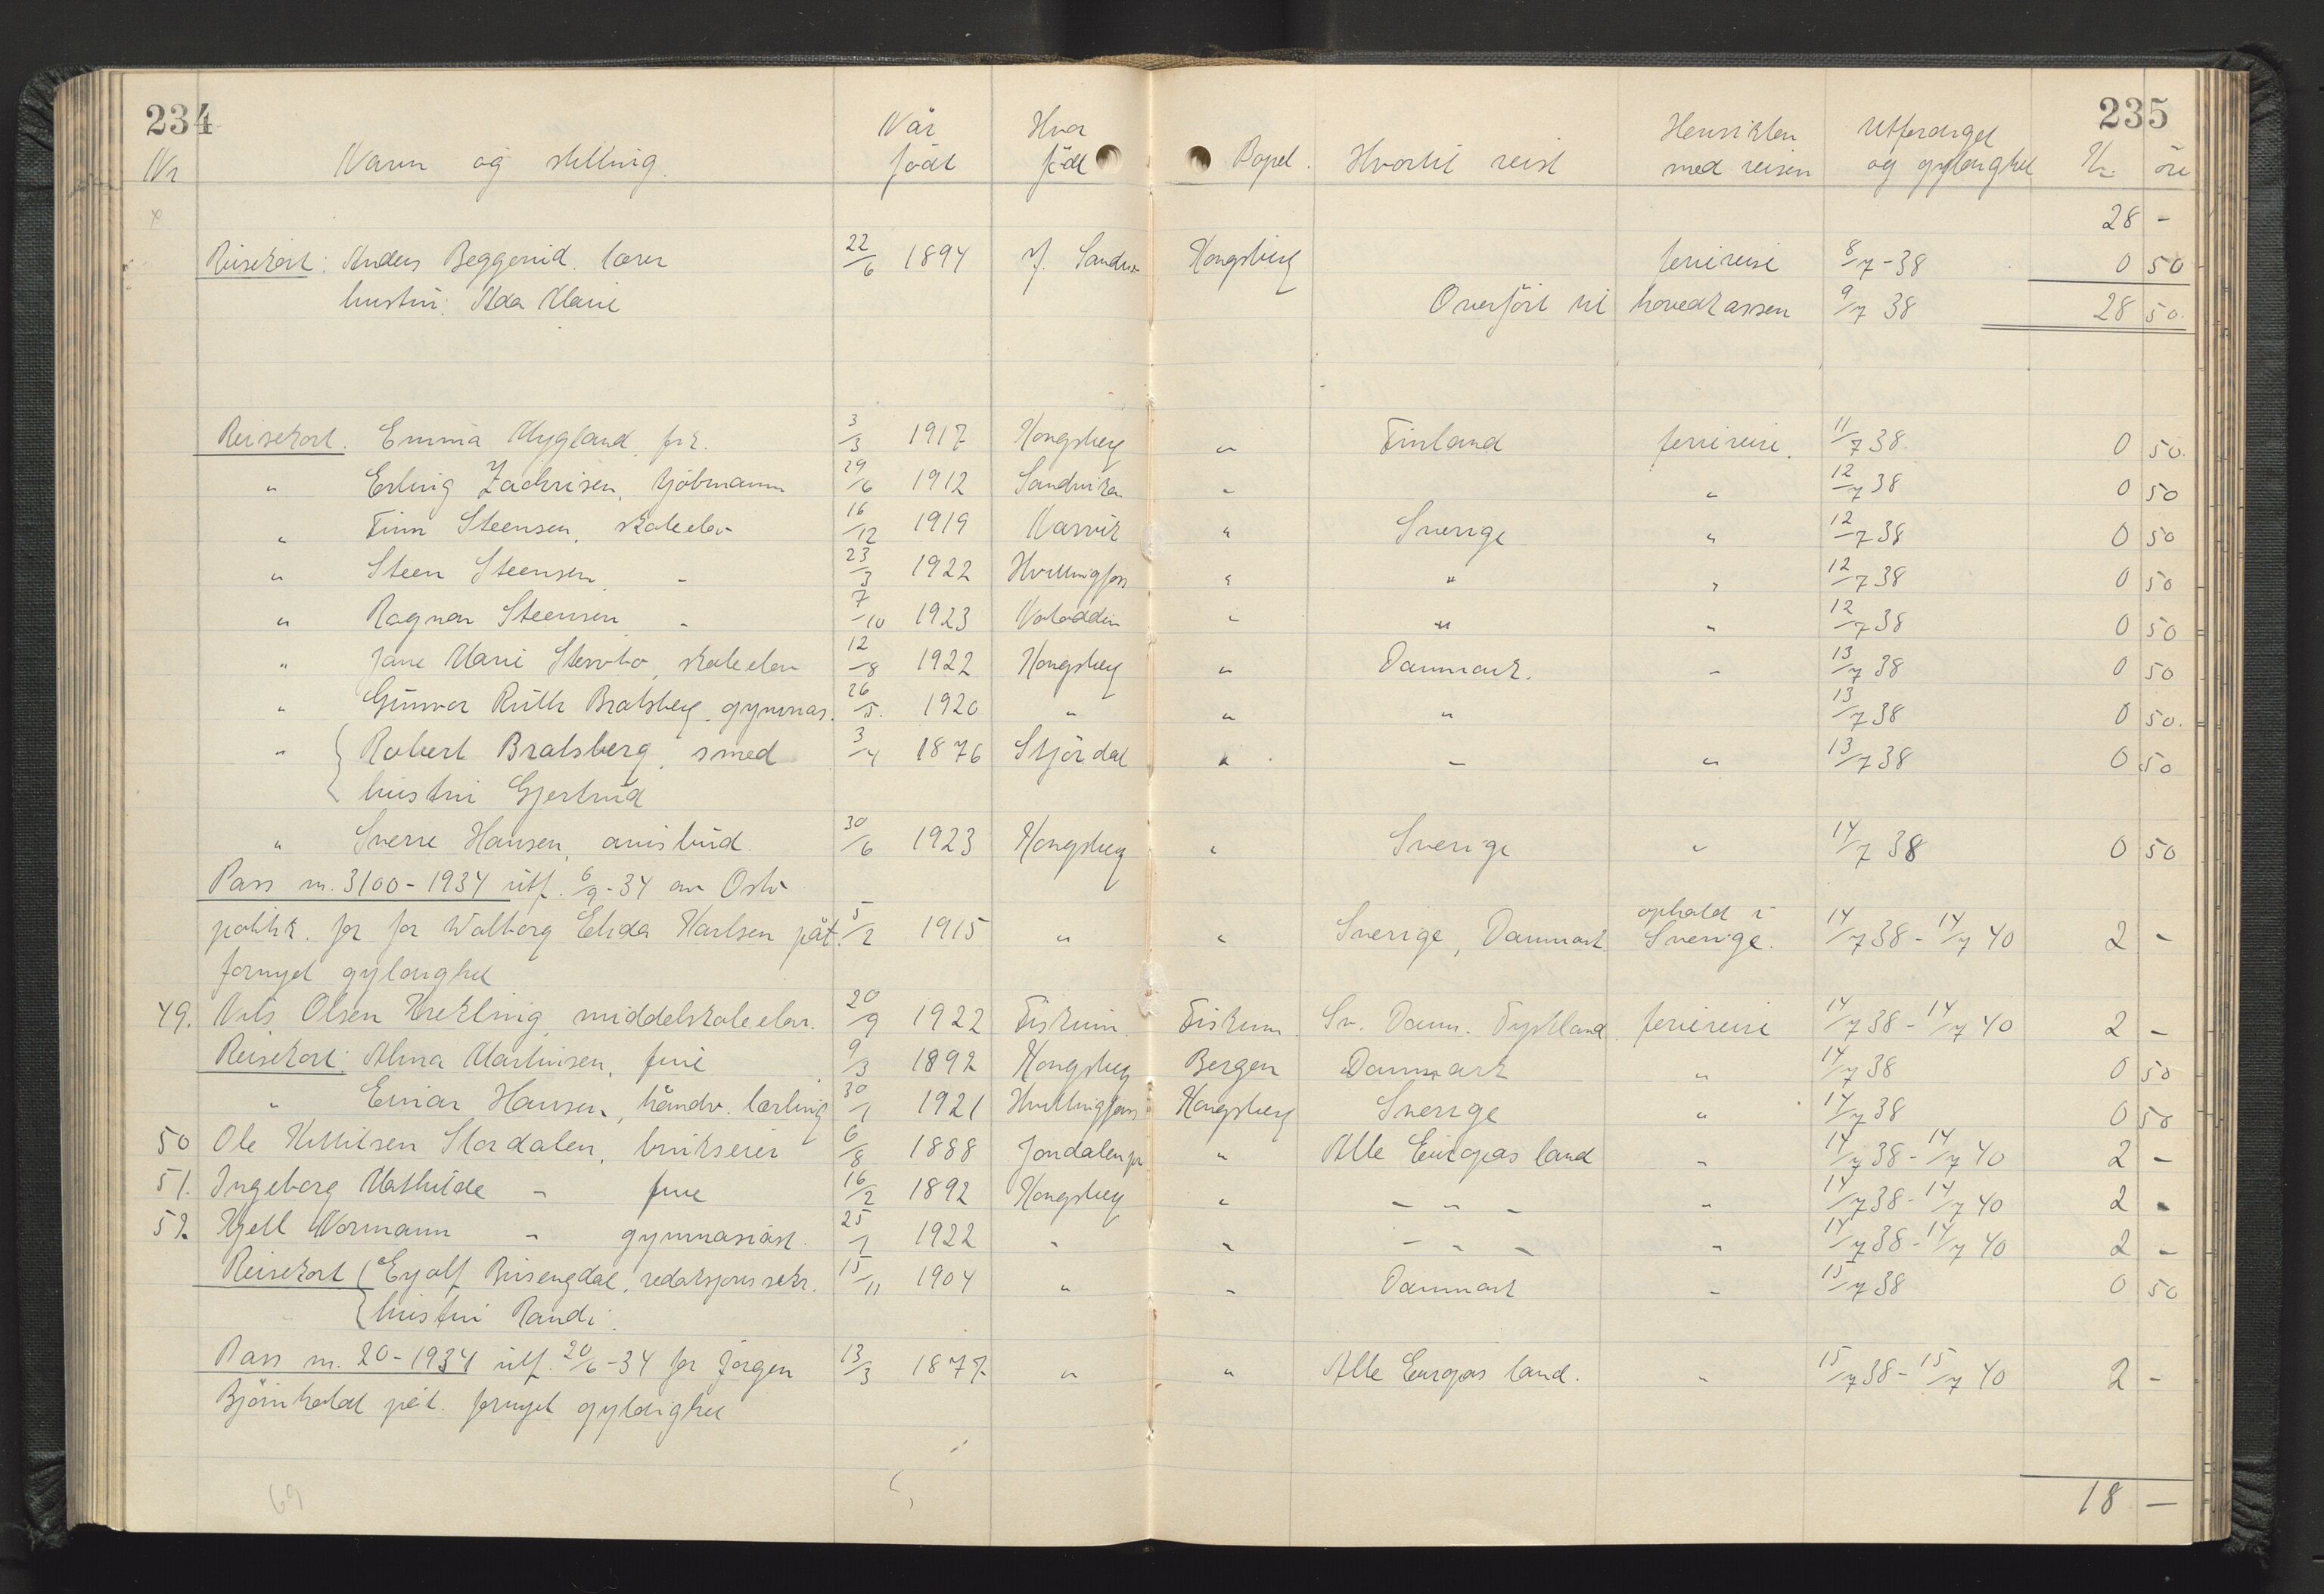 234
235
Nr Navn og stilling. Når født Hvor født Bopel. Hvortil reist Hensikten med reisen Utferdiget og gyldighet Kr. öre
28 -
Reisekort: Anders Beggerud. lærer 22/6 1894 Sandsv. Kongsberg feriereise 8/7-38 0 50
hustru: Ada Marie Overfört til hovedkassen 9/7 38 28 50.
Reisekort. Emma Mygland, frk. 3/3 1917 Kongsberg " Finland feriereise. 11/7 38. 0 50.
" Erling Zachrisen, kjöbmann 29/6 1912 Sandviken " " 12/7 38 0 50
" Finn Steensen, skoleelev 16/12 1919 Narvik " Sverige " 12/7 38 0 50
" Steen Steensen, - 23/3 1922 Hvittingfoss " " " 12/7 38 0 50
" Ragnar Steensen - 7/10 1923 " " " 12/7 38 0 50
" Jane Marie skoleelev 12/8 1922 Kongsberg " Danmark. - 13/7 38 0 50
" Gunvor Ruth Bratsberg, gymnas. 26/5. 1920 " " " 13/7 38 0 50.
" { Robert Bratsberg, smed 3/4 1876 Stjördal " - " 13/7 38 0 50
{ hustru Gjertrud
" Sverre Hansen, avisbud. 30/6 1923 Kongsberg " Sverige " 14/7 38 0 50
Pass nr. 3100-1934 utf. 6/9-34 av Oslo
politik. for for Walborg Elida Karlsen påt. 5/2 1915 " " Sverige, Danmark ophold i Sverige. 14/7 38 - 14/7 40 2 -
fornyet gyldighet
49. Nils Olsen Krekling middelskoleelev. 20/9 1922 Fiskum. Fiskum. Sv. Danm. Tyskland. feriereise 14/7 38 - 14/7 40 2 -
Reisekort: Alma Martinsen, frue 9/3 1892 Kongsberg Bergen Danmark " 14/7 38 0 50
" Einar Hansen, håndv. lærling 30/1 1921 Hvittingfoss Kongsberg Sverige " 14/7 38 0 50
50 Ole Kittilsen Stordalen, brukseier 6/8 1888 Jondalen " Alle Europas land " 14/7 38 - 14/7 40 2 -
51. Ingeborg Mathilde - frue 16/2 1892 Kongsberg " - " - " 14/7 38 - 14/7 40 2 -
52 Kjell Normann - gymnasiast. 25/1 1922 " " - " - " 14/7 38 - 14/7 40 2 -
Reisekort { Eyolf redaksjonssekr. 15/11 1904 " - Danmark - 15/7 38 0 50
{ hustru Randi.
Pass nr. 20-1934 utf. 20/6-34 for Jörgen 13/3 1877 " " Alle Europas land. " 15/7 38 - 15/7 40 2 -
Björnholdt påt. fornyet gyldighet
69
18 -